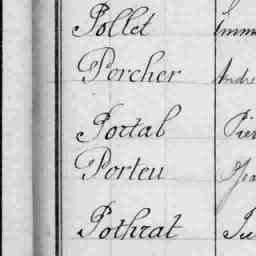 Pollet
Porcher Andre
Portal Pier
Porteu
Pothrat